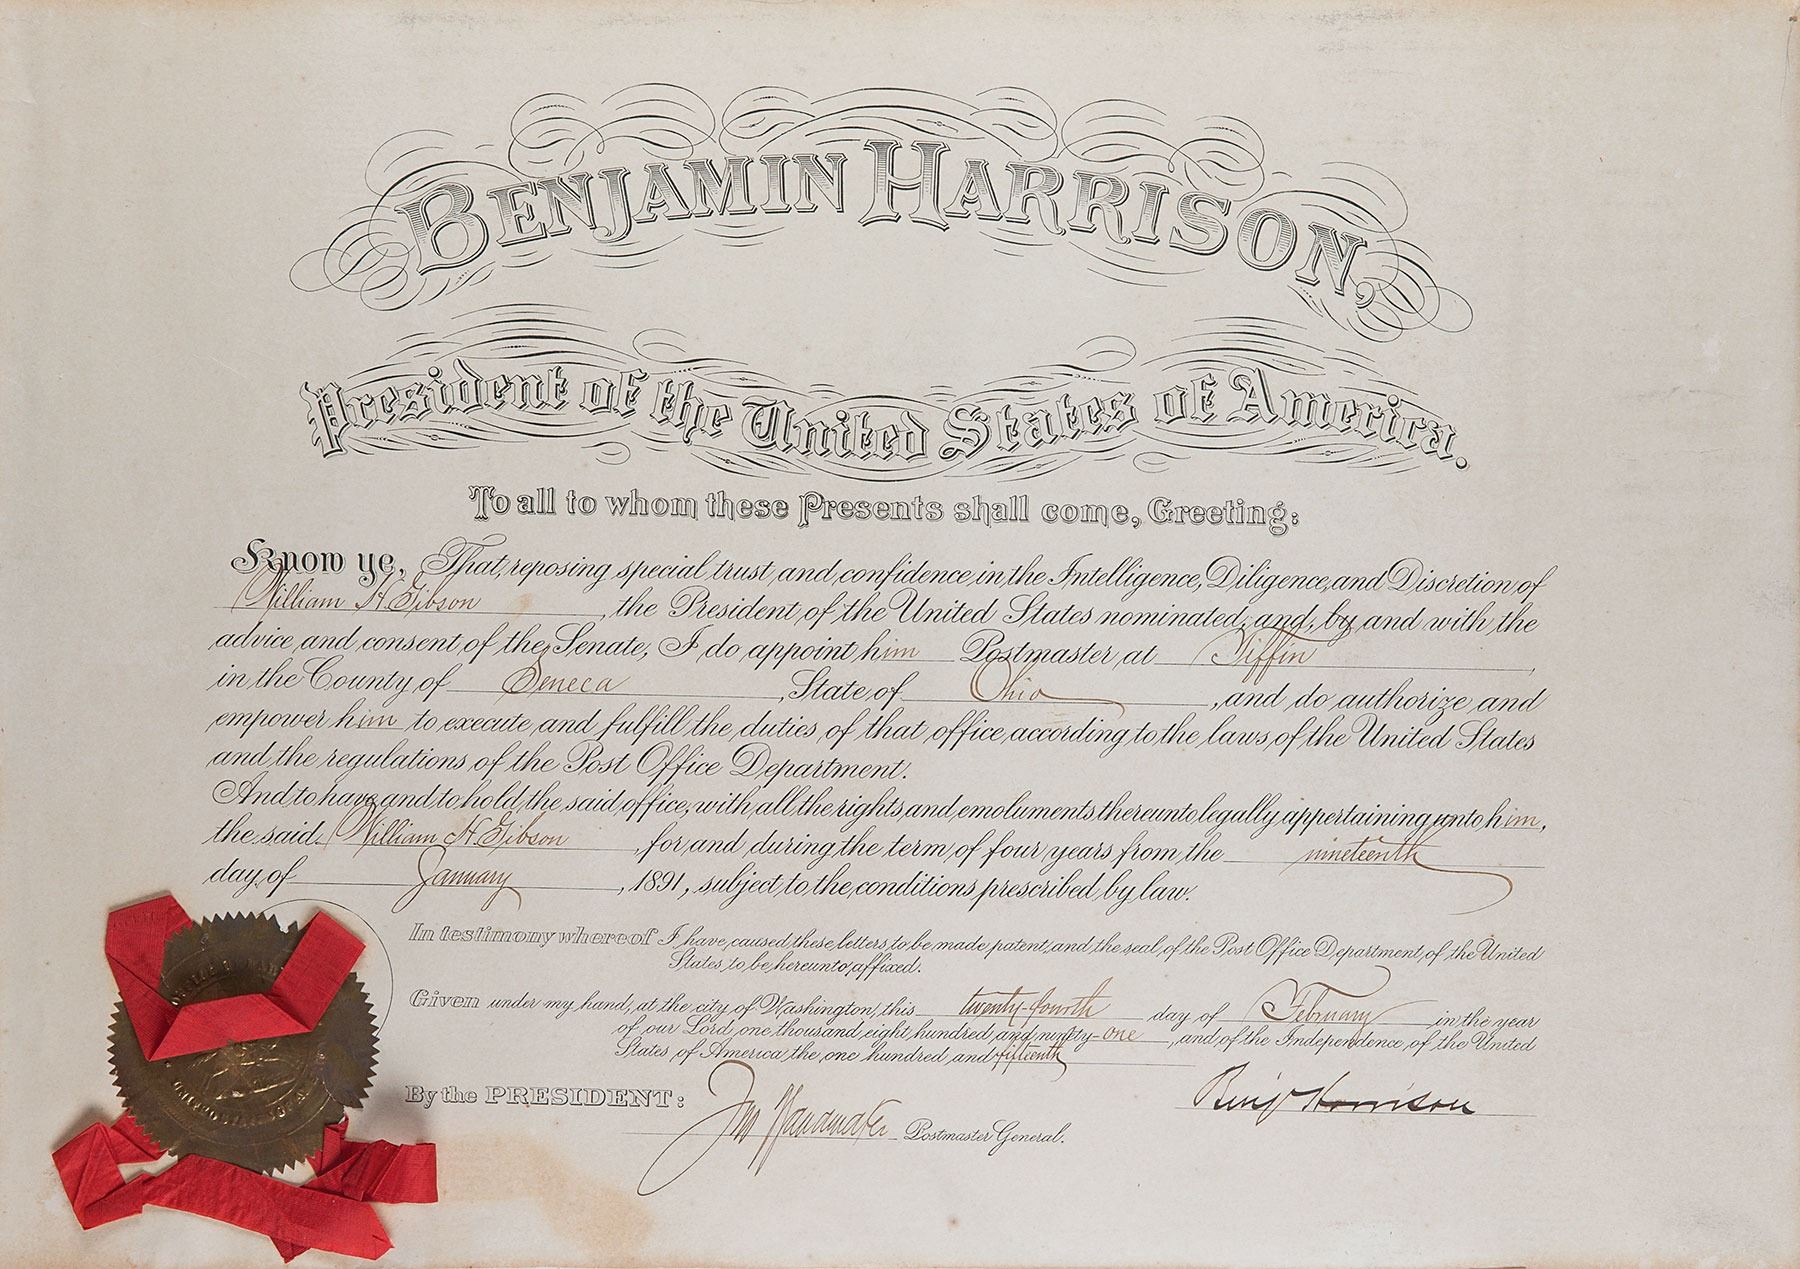 BENJAMIN HARRISON,
President of the United States of America.
To all to whom these Presents shall come, Greeting:
Know ye, That, reposing special trust and confidence in the Intelligence, Diligence, and Discretion of
William H. Gibson, the President of the United States nominated, and, by and with the
advice and consent of the Senate, I do appoint him Postmaster at Tiffin,
in the County of Seneca, State of Ohio, and do authorize and
empower him to execute and fulfill the duties of that office according to the laws of the United States
and the regulations of the Post Office Department.
And to have and to hold the said office, with all the rights and emoluments thereunto legally appertaining unto him,
the said William H. Gibson, for and during the term of four years from the nineteenth
day of January, 1891, subject to the conditions prescribed by law.
In testimony whereof I have caused these letters to be made patent, and the seal of the Post Office Department of the United
States to be hereunto affixed.
Given under my hand, at the city of Washington, this twenty-fourth day of February in the year
of our Lord one thousand eight hundred and ninety-one, and of the Independence of the United
States of America the one hundred and fifteenth
By the PRESIDENT:
Benj Harrison
Jno Wanamaker Postmaster General.